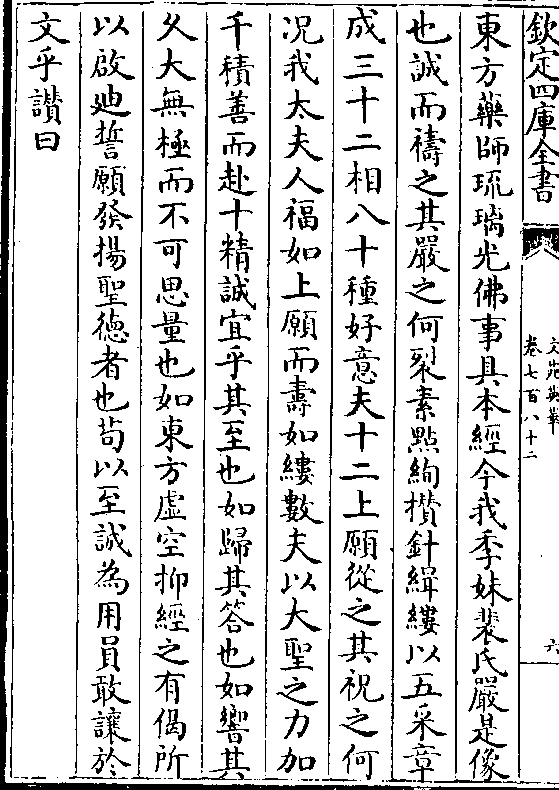 欽定四庫全書
文苑英華
卷七百八十二
六
東方藥師琉璃光佛事具本經今我季妹裴氏嚴是像
也誠而禱之其嚴之何裂素點絢攢針緝縷以五采章
成三十二相八十種好意夫十二上願從之其祝之何
况我太夫人福如上願而壽如縷數夫以大聖之力加
千積善而赴十精誠宜乎其至也如歸其答也如響其
久大無極而不可思量也如東方虛空抑經之有偈所
以啟廸誓願發揚聖德者也茍以至誠為用員敢讓於
文乎讚曰